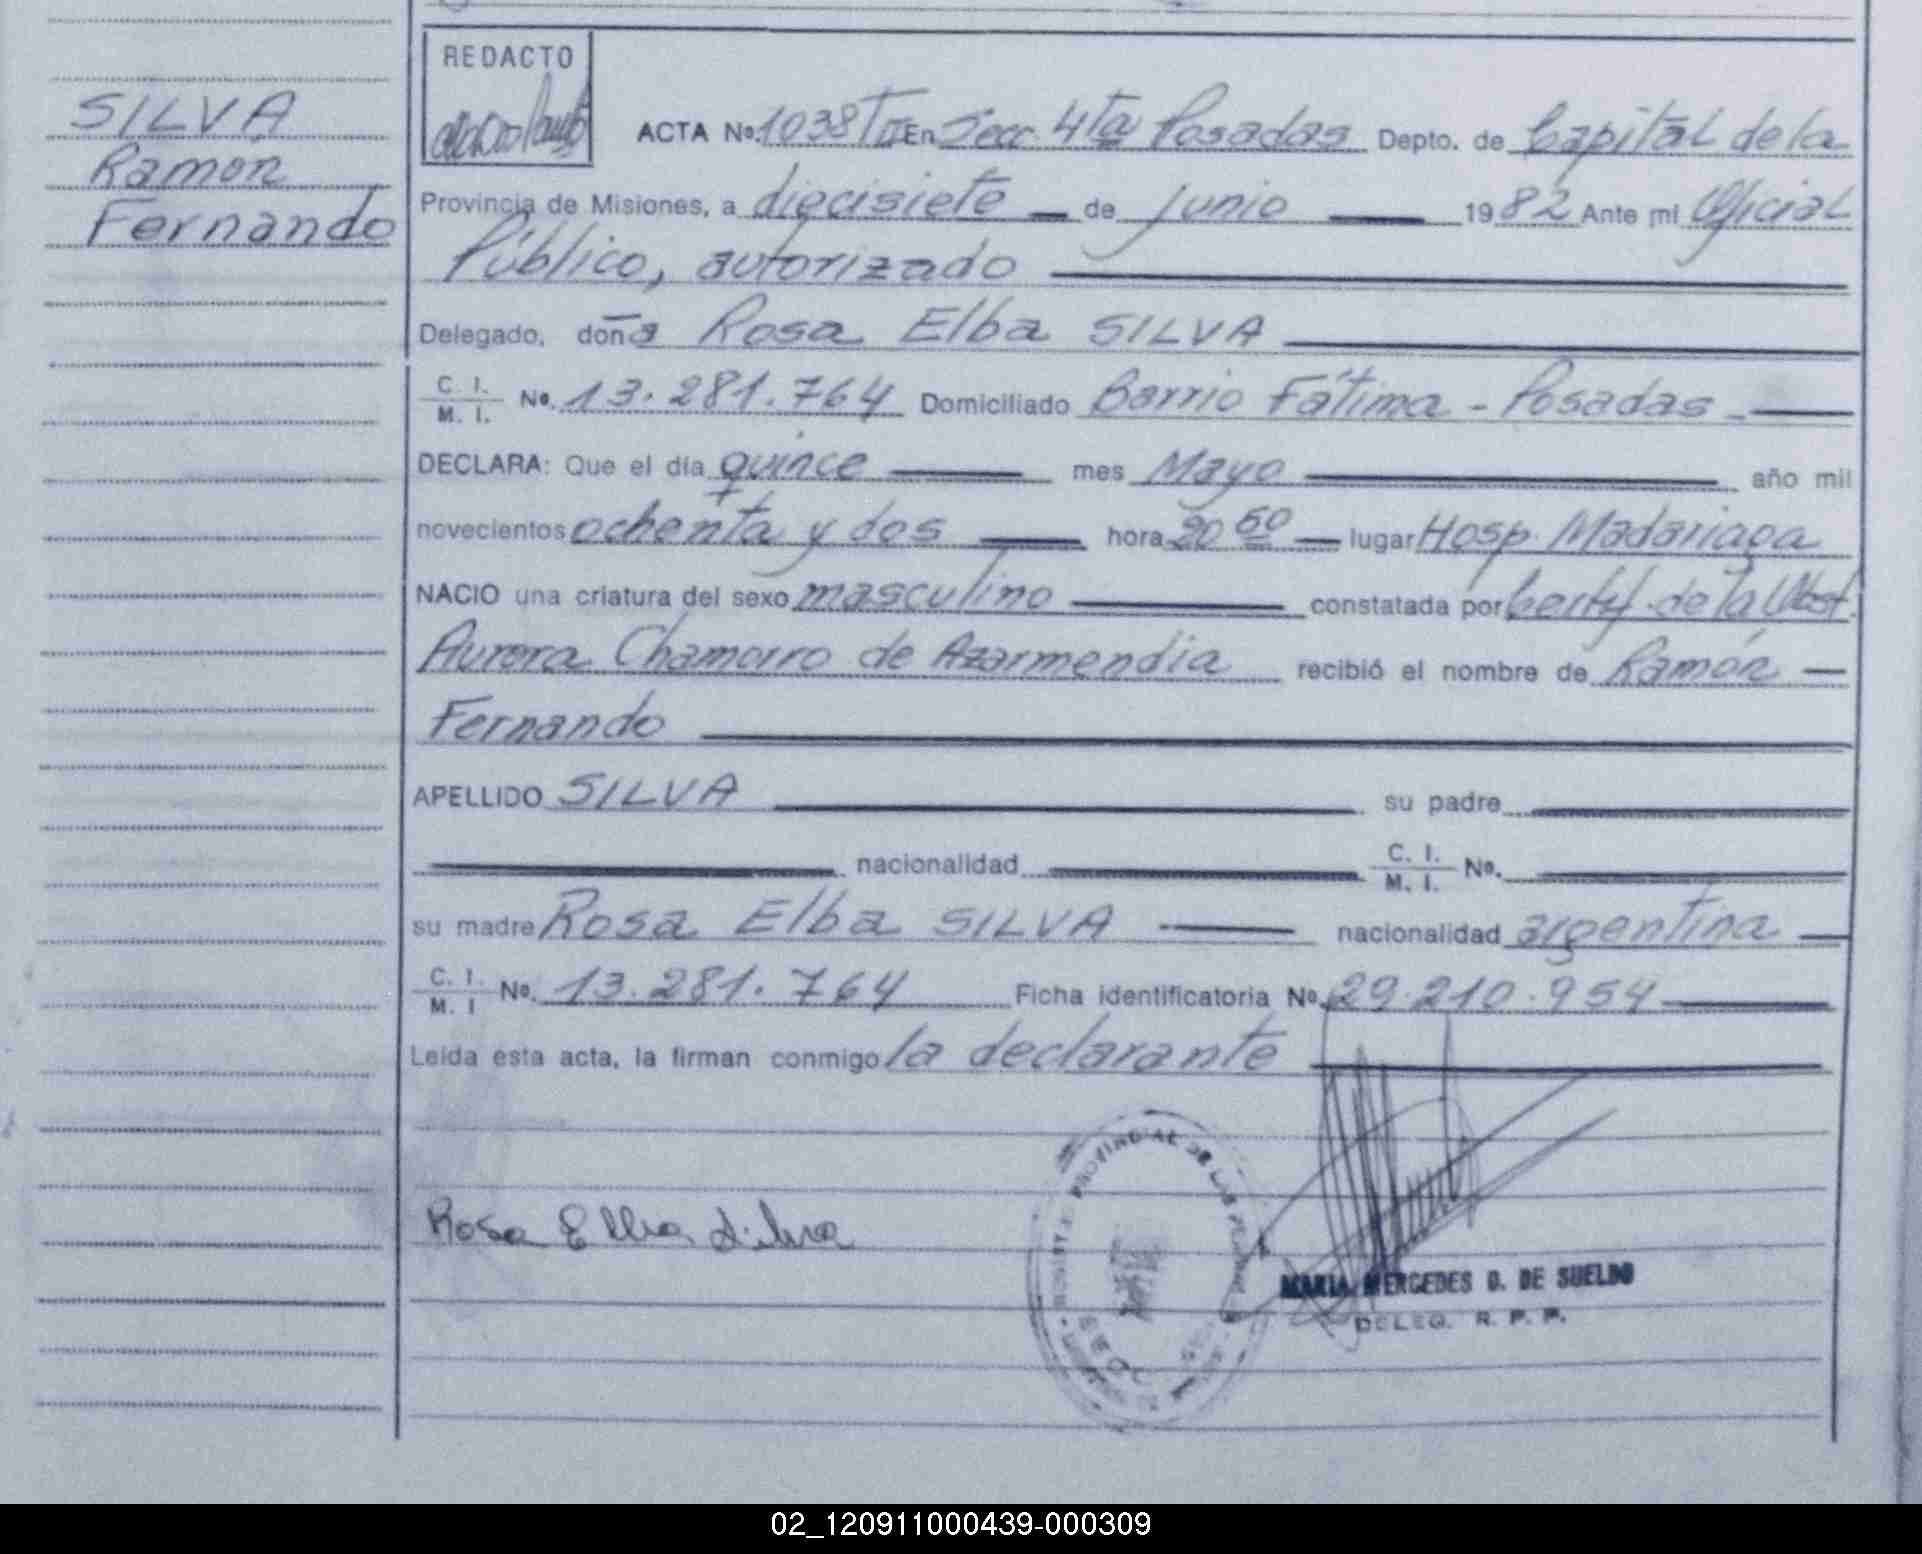 SILVA
Ramón
Fernando
REDACTO
ACTA Nº 1038 T II En Secc. 4ta Posadas Depto. de Capital de la
Provincia de Misiones, a diecisiete de junio 1982 Ante mi Oficial
Público, autorizado
Delegado, doña Rosa Elba SILVA
C. I.
M. I. Nº. 13.281.764 Domiciliado Barrio Fátima - Posadas -
DECLARA: Que el día quince mes Mayo año mil
novecientos ochenta y dos hora 20 50 lugar Hosp. Madariaga
NACIO una criatura del sexo masculino constatada por Certif. de la Obst.
Aurora Chamorro de Azarmendia recibió el nombre de Ramón
Fernando
APELLIDO SILVA su padre
nacionalidad C. I.
M. I. Nº.
su madre Rosa Elba SILVA nacionalidad argentina
C. I.
M. I Nº. 13.281.764 Ficha identificatoria Nº 29.210.954
Leida esta acta, la firman conmigo la declarante
PROVINCIAL DE LAS
Rosa Elba Silva
MARIA MERCEDES D. DE SUELDO
DELEG. R. P. P.
02_120911000439-000309